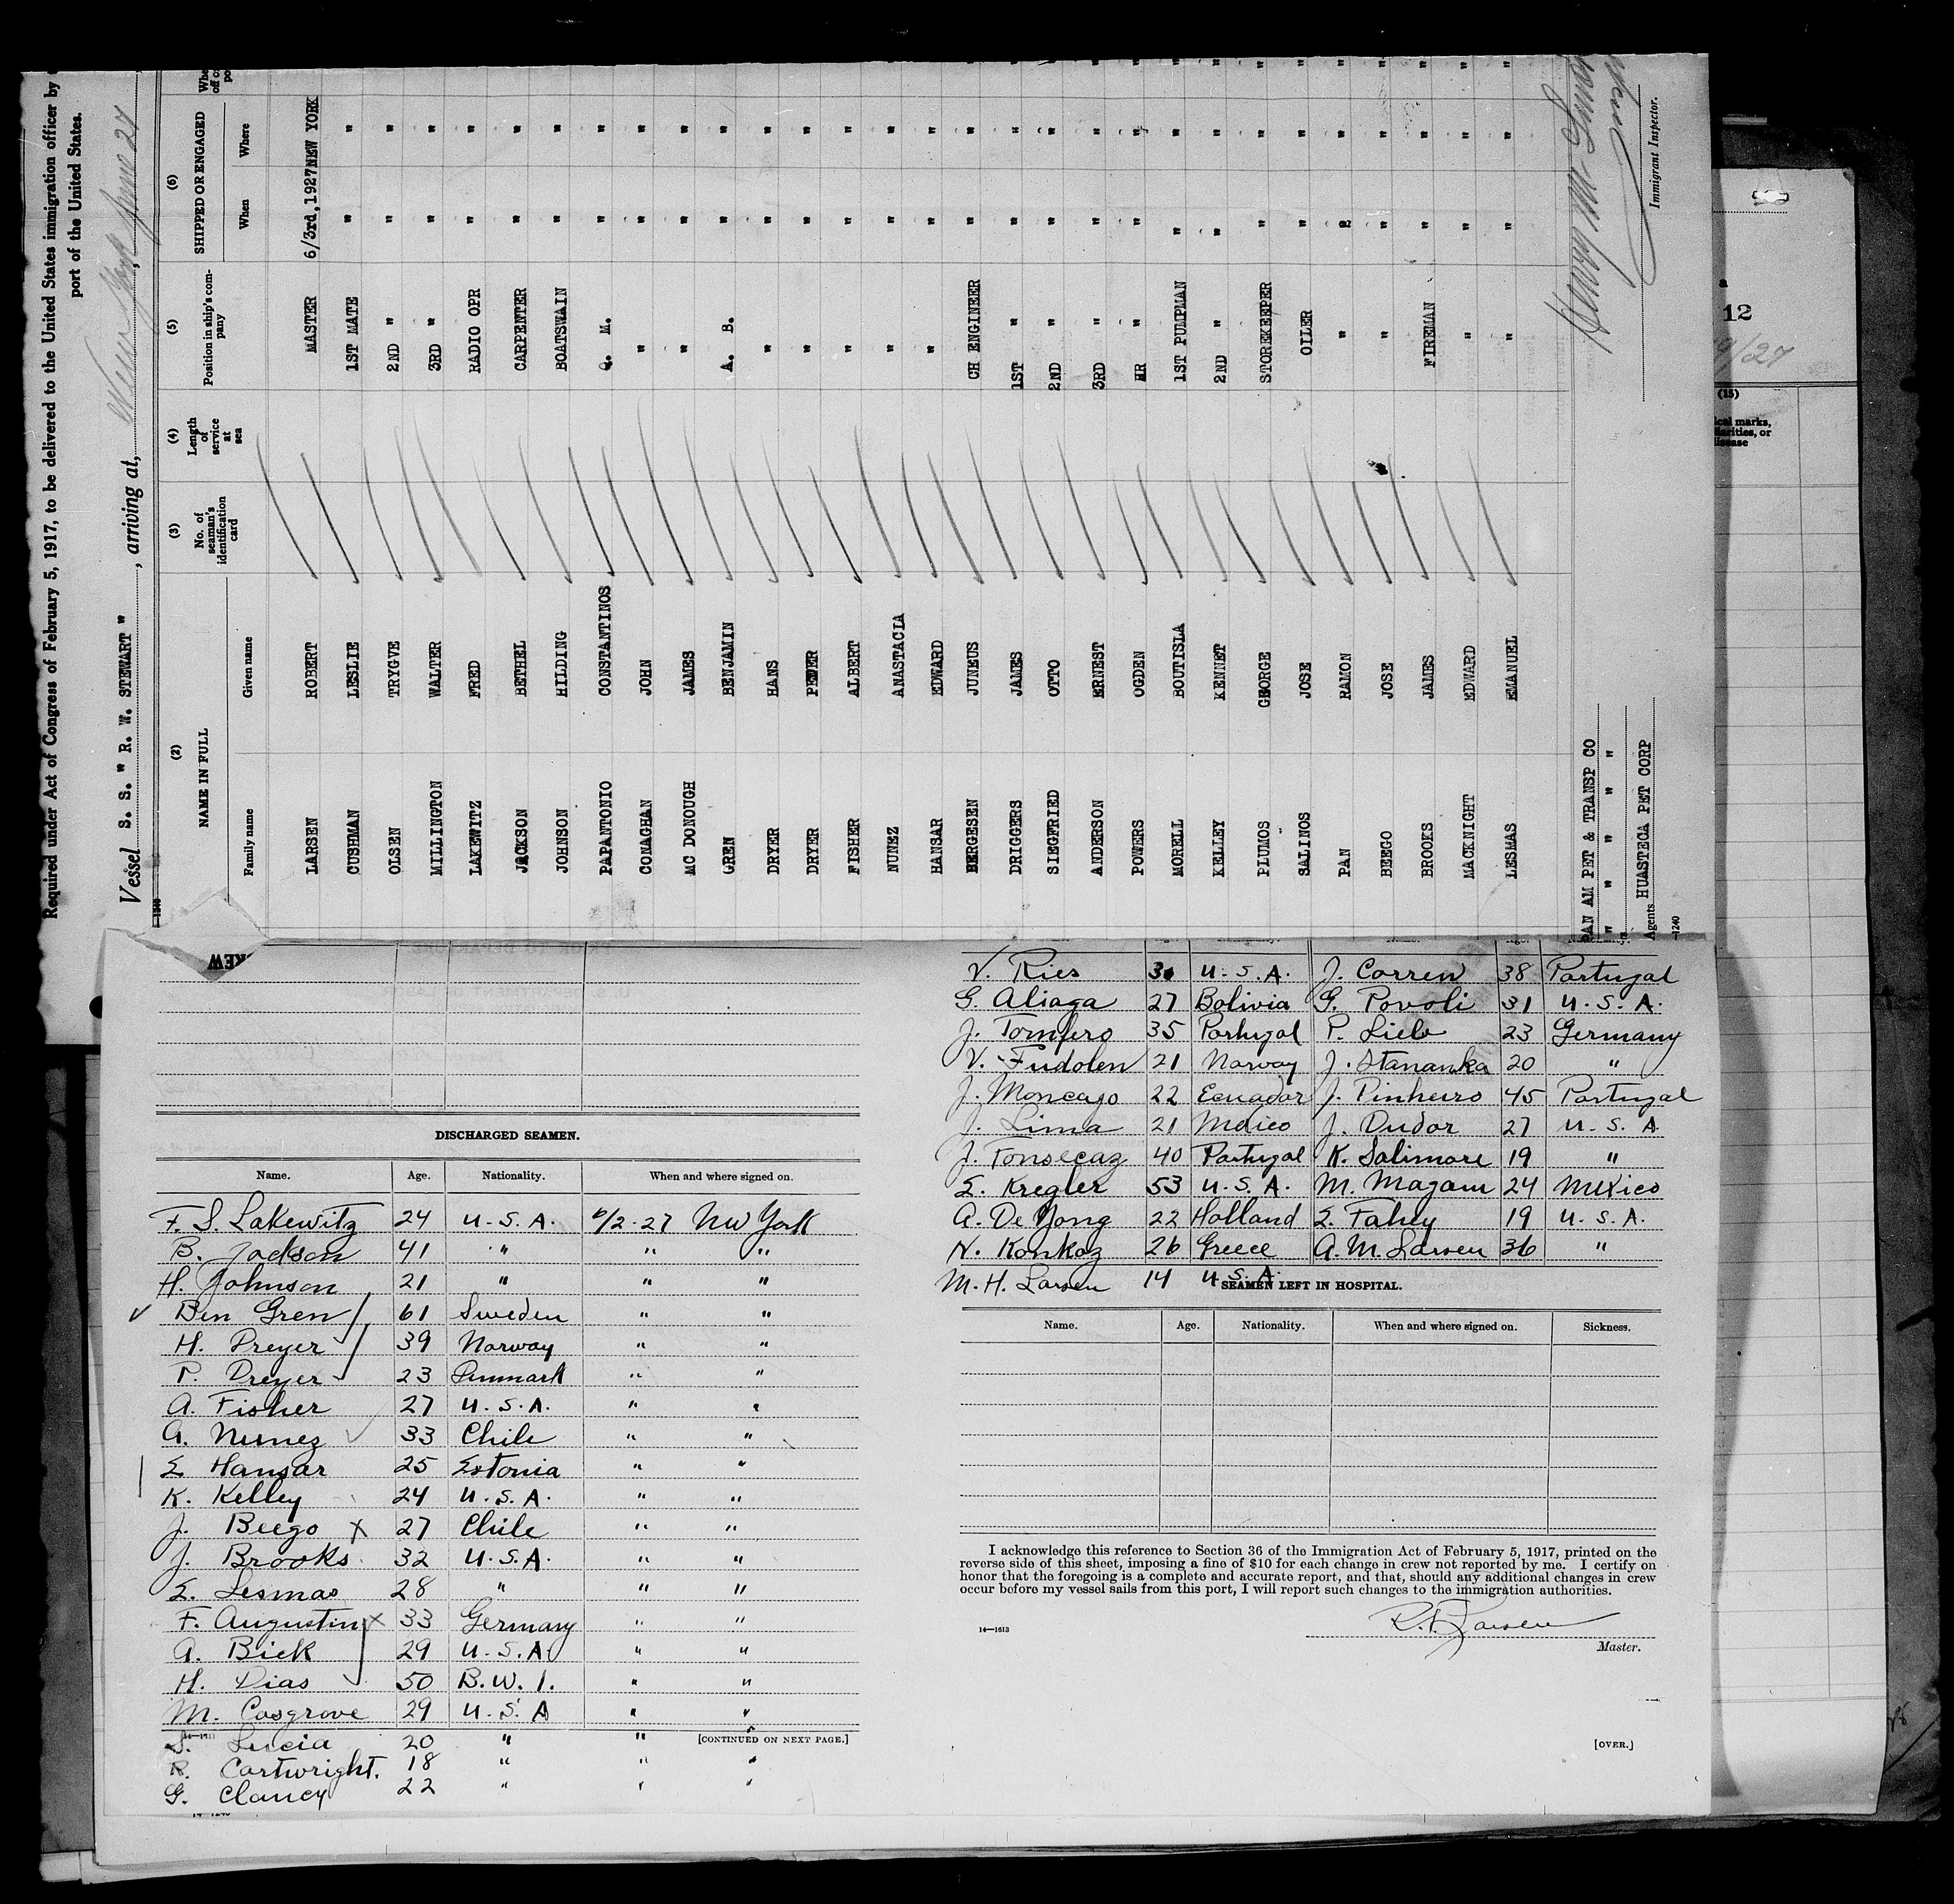 Required under Act of Congress of February 5, 1917, to be delivered to the United States immigration officer by
port of the United States.
Vessel S. S. " R. W. STEWART ", arriving at, New York, June 27
(2) (3) (4) (5) (6)
NAME IN FULL No. of seaman's identification card Length of service at sea Position in ship's company SHIPPED OR ENGAGED
Family name Given name When Where
LARSEN ROBERT MASTER 6/3rd,1927 NEW YORK "
CUSHMAN LESLIE 1ST MATE " " "
OLSEN TRYGVE 2ND " " " "
MILLINGTON WALTER 3RD " " " "
LAKEWITZ FRED RADIO OPR " " "
JACKSON BETHEL CARPENTER " " "
JOHNSON HILDING BOATSWAIN " " "
PAPANTONIO CONSTANTINOS Q. M. " " "
CONAGHAN JOHN " " " "
MC DONOUGH JAMES " " " "
GREN BENJAMIN A. B. " " "
DRYER HANS " " " "
DRYER PETER " " " "
FISHER ALBERT " " " "
NUNEZ ANASTACIA " " " "
HANSAR EDWARD " " " "
BERGESEN JUNEUS CH ENGINEER " " "
DRIGGERS JAMES 1ST " " " "
SIEGFRIED OTTO 2ND " " " "
ANDERSON ERNEST 3RD " " " "
POWERS OGDEN JR " " " "
MORELL BOUTISLA 1ST PUMPMAN " " "
KELLEY KENNET 2ND " " " "
PLUMOS GEORGE STOREKEEPER " " "
SALINOS JOSE OILER " " "
PAN RAMON " " " "
BEEGO JOSE " " " "
BROOKS JAMES FIREMAN " " "
MACKNIGHT EDWARD " " " "
LESMAS EMANUEL " " " "
PAN AM PET & TRANSP CO
" " " " "
Agents HUASTECA PET CORP
—1240
Immigrant Inspector.
12
(15)
DISCHARGED SEAMEN.
Name. Age. Nationality. When and where signed on.
F. S. Lakewitz 24 U.S.A. 6/2-27 New York
B. Jackson 41 " " "
H. Johnson 21 " " "
Ben Gren 61 Sweden " "
H. Dreyer 39 Norway " "
P. Dreyer 23 Denmark " "
A. Fisher 27 U.S.A. " "
A. Nunez 33 Chile " "
E Hansar 25 Estonia " "
K. Kelley 24 U.S.A. " "
J. Beego X 27 Chile " "
J. Brooks 32 U.S.A. " "
E. Lesmas 28 " " "
F. Augustin X 33 Germany " "
A. Bick 29 U.S.A. " "
H. Dias 50 B.W.I. " "
M. Cosgrove 29 U.S.A " "
[CONTINUED ON NEXT PAGE.]
S. Lucia 20 " " "
R. Cartwright. 18 " " "
G. Clancy 22 " " "
V. Ries 30 U.S.A. J. Corren 38 Portugal
G. Aliaga 27 Bolivia G. Povoli 31 U.S.A.
J. Tomfero 35 Portugal P. Lieb 23 Germany
V. Fudolen 21 Norway J. Stananka 20 "
J. Moncayo 22 Ecuador J. Pinheiro 45 Portugal
J. Lima 21 Mexico J. Dudor 27 U.S.A
J. Fonsecaz 40 Portugal K. Salimore 19 "
E. Kregler 53 U.S.A. M. Magam 24 Mexico
A. De Jong 22 Holland E. Fahey 19 U.S.A.
N. Konkoz 26 Greece A. M. Larsen 36 "
M. H. Larsen 14 U.S.A.
SEAMEN LEFT IN HOSPITAL.
Name. Age. Nationality. When and where signed on. Sickness.
I acknowledge this reference to Section 36 of the Immigration Act of February 5, 1917, printed on the
reverse side of this sheet, imposing a fine of $10 for each change in crew not reported by me. I certify on
honor that the foregoing is a complete and accurate report, and that, should any additional changes in crew
occur before my vessel sails from this port, I will report such changes to the immigration authorities.
14—1613
Master.
[OVER.]